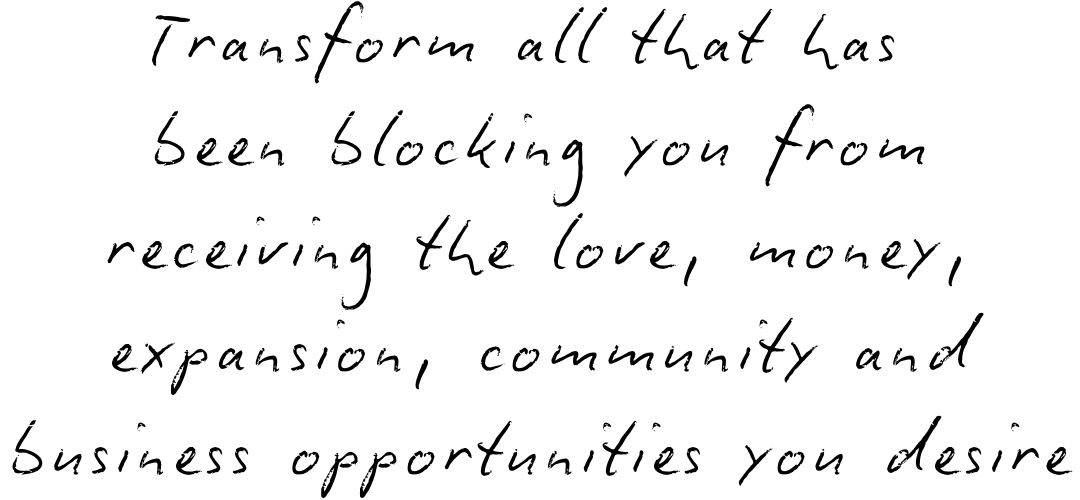 Transform all that has
been blocking you from
receiving the love, money,
expansion, community and
business opportunities you desire